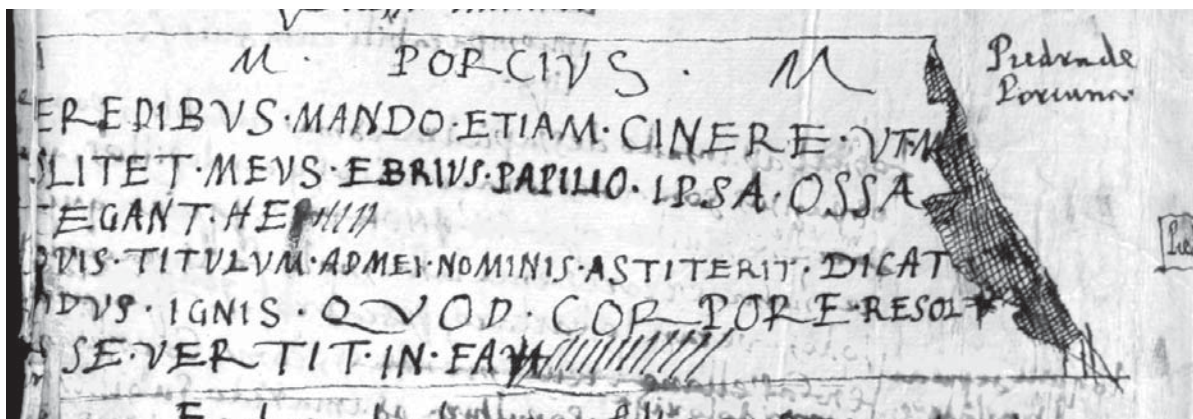 M · PORCIVS · M
EREDIBVS·MANDO·ETIAM·CINERE·VT·M
LITET·MEVS·EBRIVS·PAPILIO·IPSA·OSSA
TEGANT·HE
VIS·TITVLVM·AD·MEI·NOMINIS·ASTITERIT·DICAT
DVS·IGNIS·QVOD·CORPORE·RESOL
SE·VERTIT·IN·FAV
Piedra de